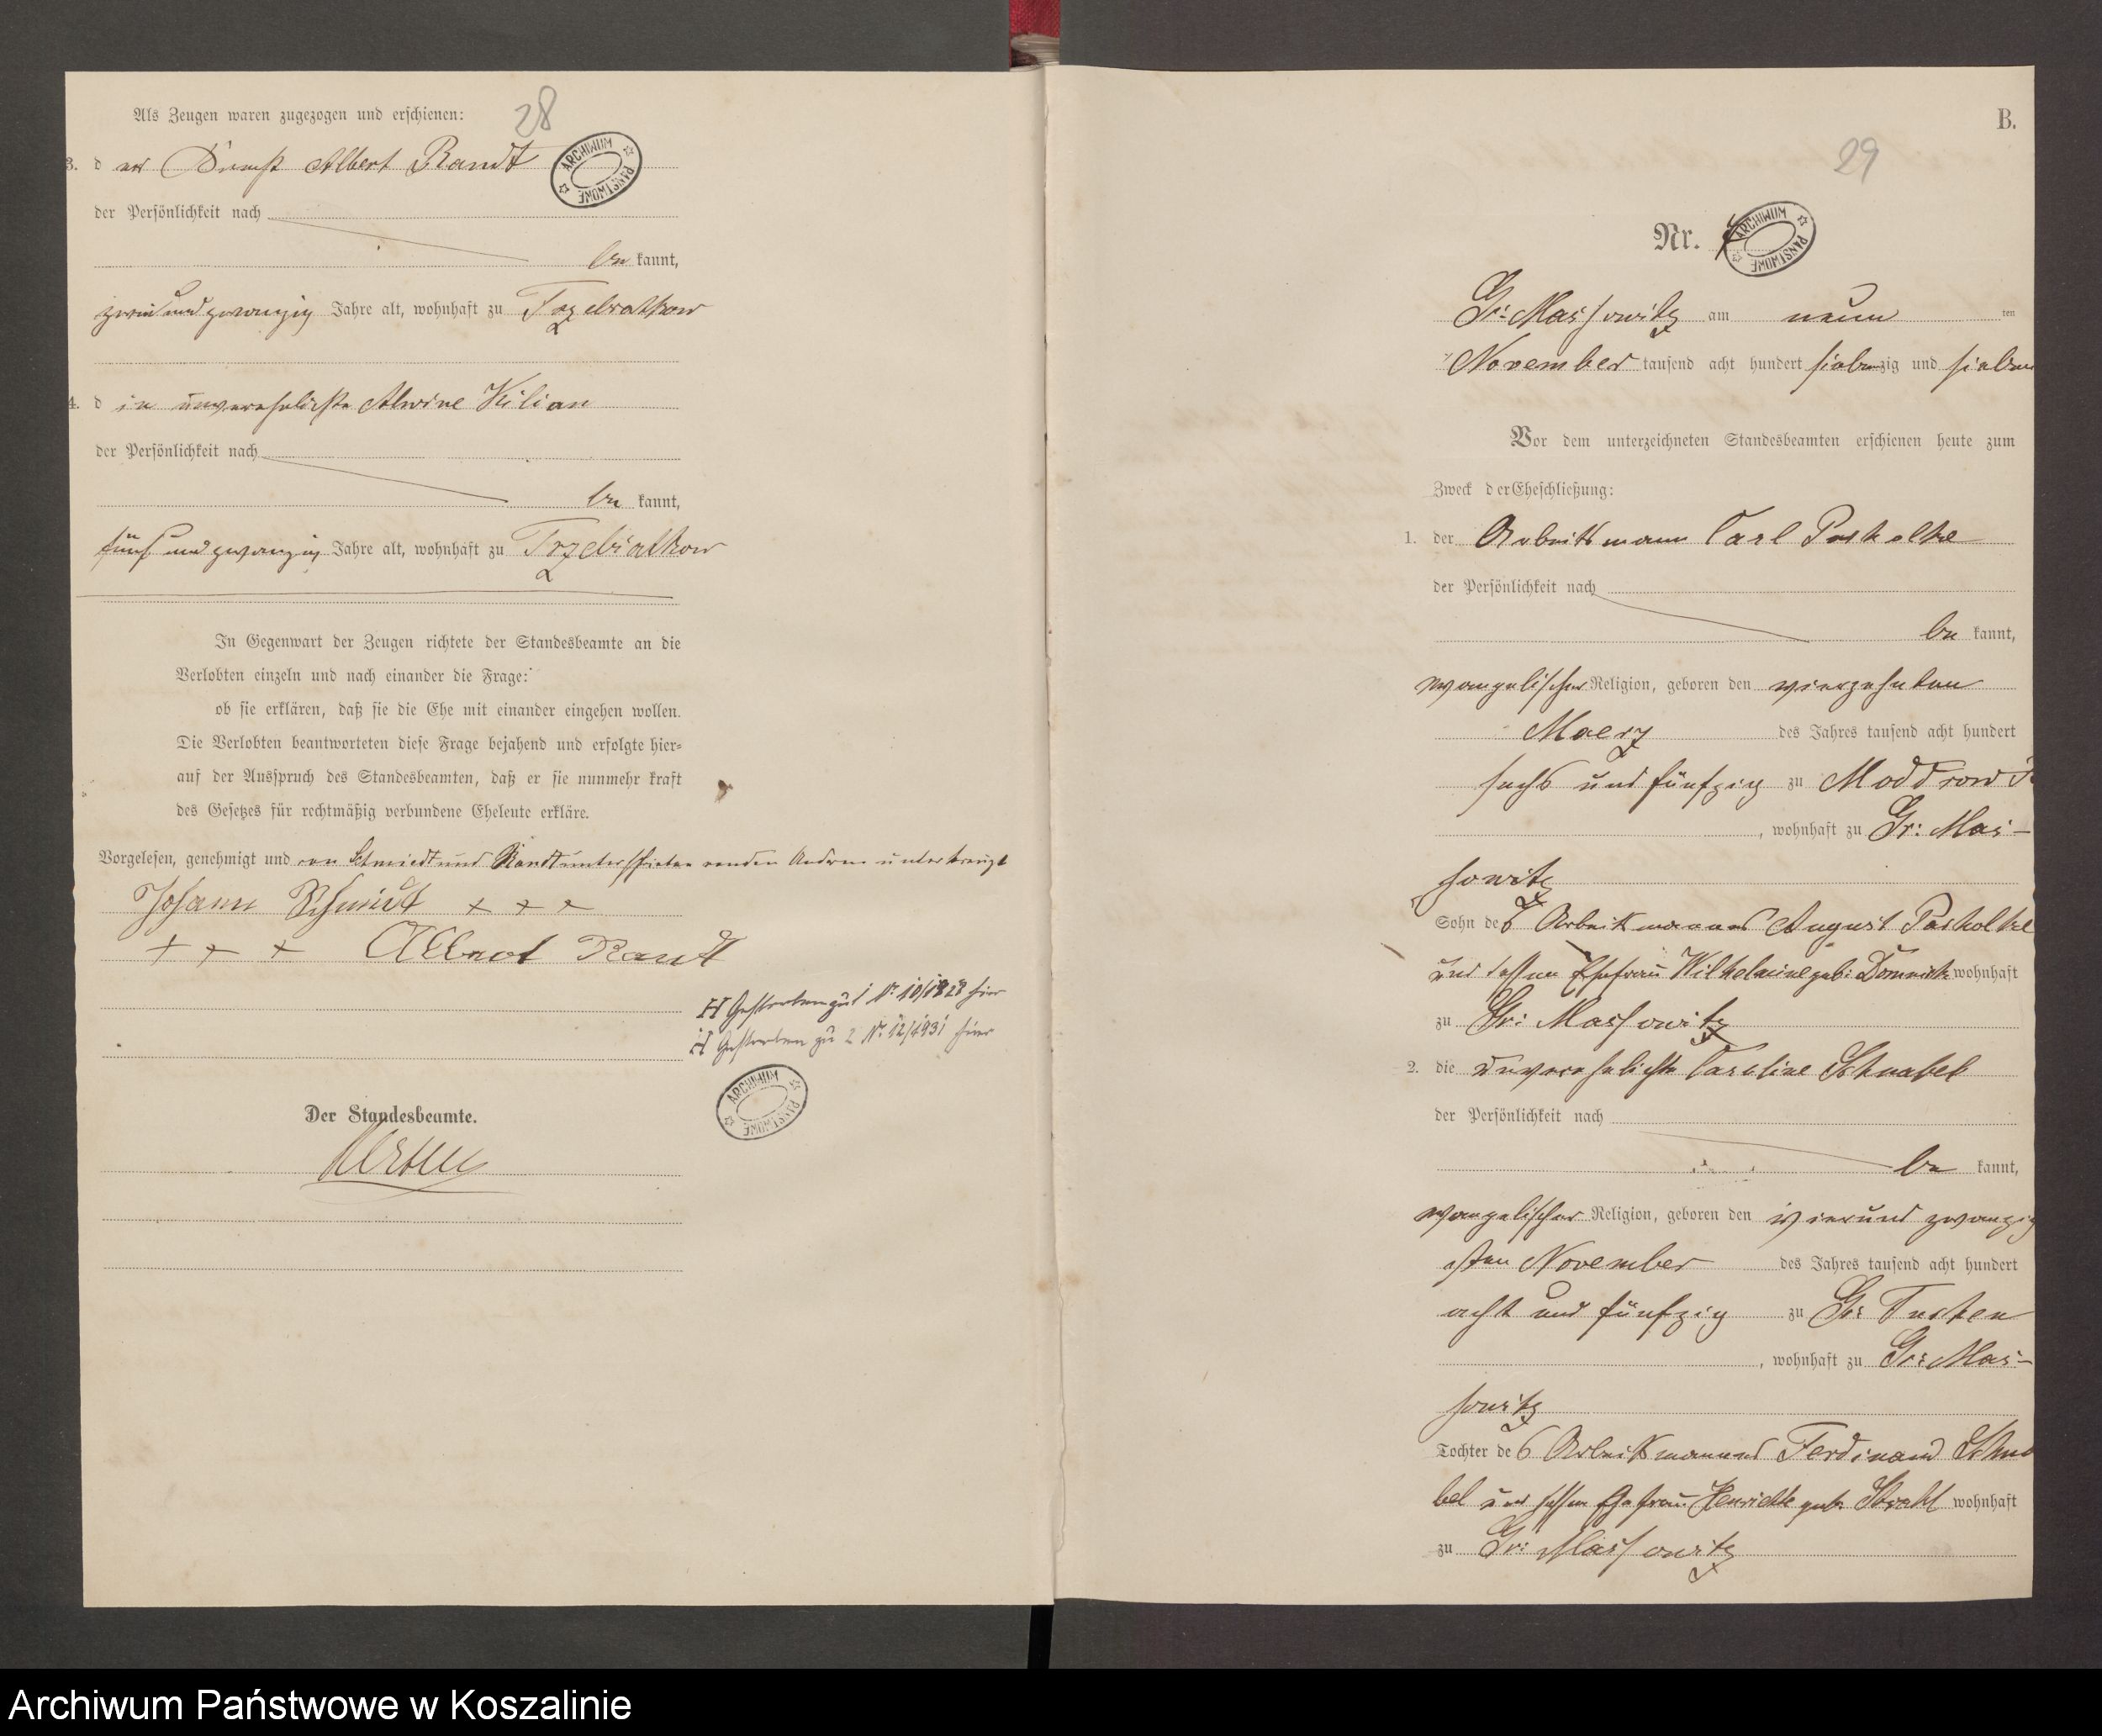 Als Zeugen waren zugezogen und erschienen:
28
3. d er Albert Randt
ARCHIWUM PAŃSTWOWE
der Persönlichkeit nach
be kannt,
zweiundzwanzig Jahre alt, wohnhaft zu Trzebiatkow
4. d ie unverehelichte Alwine Kilian
der Persönlichkeit nach
be kannt,
fünfundzwanzig Jahre alt, wohnhaft zu Trzebiatkow
In Gegenwart der Zeugen richtete der Standesbeamte an die
Verlobten einzeln und nach einander die Frage:
ob sie erklären, daß sie die Ehe mit einander eingehen wollen.
Die Verlobten beantworteten diese Frage bejahend und erfolgte hier-
auf der Ausspruch des Standesbeamten, daß er sie nunmehr kraft
des Gesetzes für rechtmäßig verbundene Eheleute erkläre.
Vorgelesen, genehmigt und von Schmidt und Randt unterschrieben von den Andern unterkreuzt
Johann Schmidt + + +
+ + + Albert Randt
H Gestorben zu 1 Nr 10/1928 hier
H Gestorben zu 2 Nr 12/1931 hier
ARCHIWUM PAŃSTWOWE
Der Standesbeamte.
B.
29
Nr.
ARCHIWUM PAŃSTWOWE
Gr: Massowitz am neun ten
November tausend acht hundert siebenzig und sieben
Vor dem unterzeichneten Standesbeamten erschienen heute zum
Zweck der Eheschließung:
1. der Arbeitsmann Carl Paskolke
der Persönlichkeit nach
be kannt,
evangelischer Religion, geboren den vierzehnten
Maerz des Jahres tausend acht hundert
sechs und fünfzig zu Moddrow
, wohnhaft zu Gr: Mas-
sowitz
Sohn des Arbeitsmannes August Paskolke
und dessen Ehefrau Wilhelmine geb: wohnhaft
zu Gr: Massowitz
2. die unverehelichte Caroline Schnabel
der Persönlichkeit nach
be kannt,
evangelischer Religion, geboren den vierundzwanzig
sten November des Jahres tausend acht hundert
acht und fünfzig zu Gr: Tuchen
, wohnhaft zu Gr: Mas-
sowitz
Tochter des Arbeitsmannes Ferdinand Schna
bel und dessen Ehefrau Henriette geb: Strehl wohnhaft
zu Gr: Massowitz
Archiwum Państwowe w Koszalinie